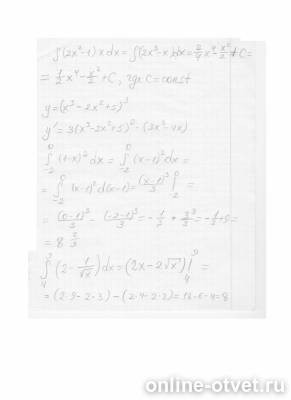 ∫(2x²-1)xdx = ∫(2x³-x)dx = 2/4 x⁴ - x²/2 + C =
= 1/2 x⁴ - x²/2 + C, где C = const
y = (x³ - 2x² + 5)³
y' = 3(x³ - 2x² + 5)² · (3x² - 4x)
∫₋₂⁰ (1-x)² dx = ∫₋₂⁰ (x-1)² dx =
= ∫₋₂⁰ (x-1)² d(x-1) = (x-1)³/3 |₋₂⁰ =
= (0-1)³/3 - (-2-1)³/3 = -1/3 + 3³/3 = -1/3 + 9 =
= 8 2/3
∫₄⁹ (2 - 1/√x) dx = (2x - 2√x) |₄⁹ =
= (2·9 - 2·3) - (2·4 - 2·2) = 18-6-4 = 8
online-otvet.ru